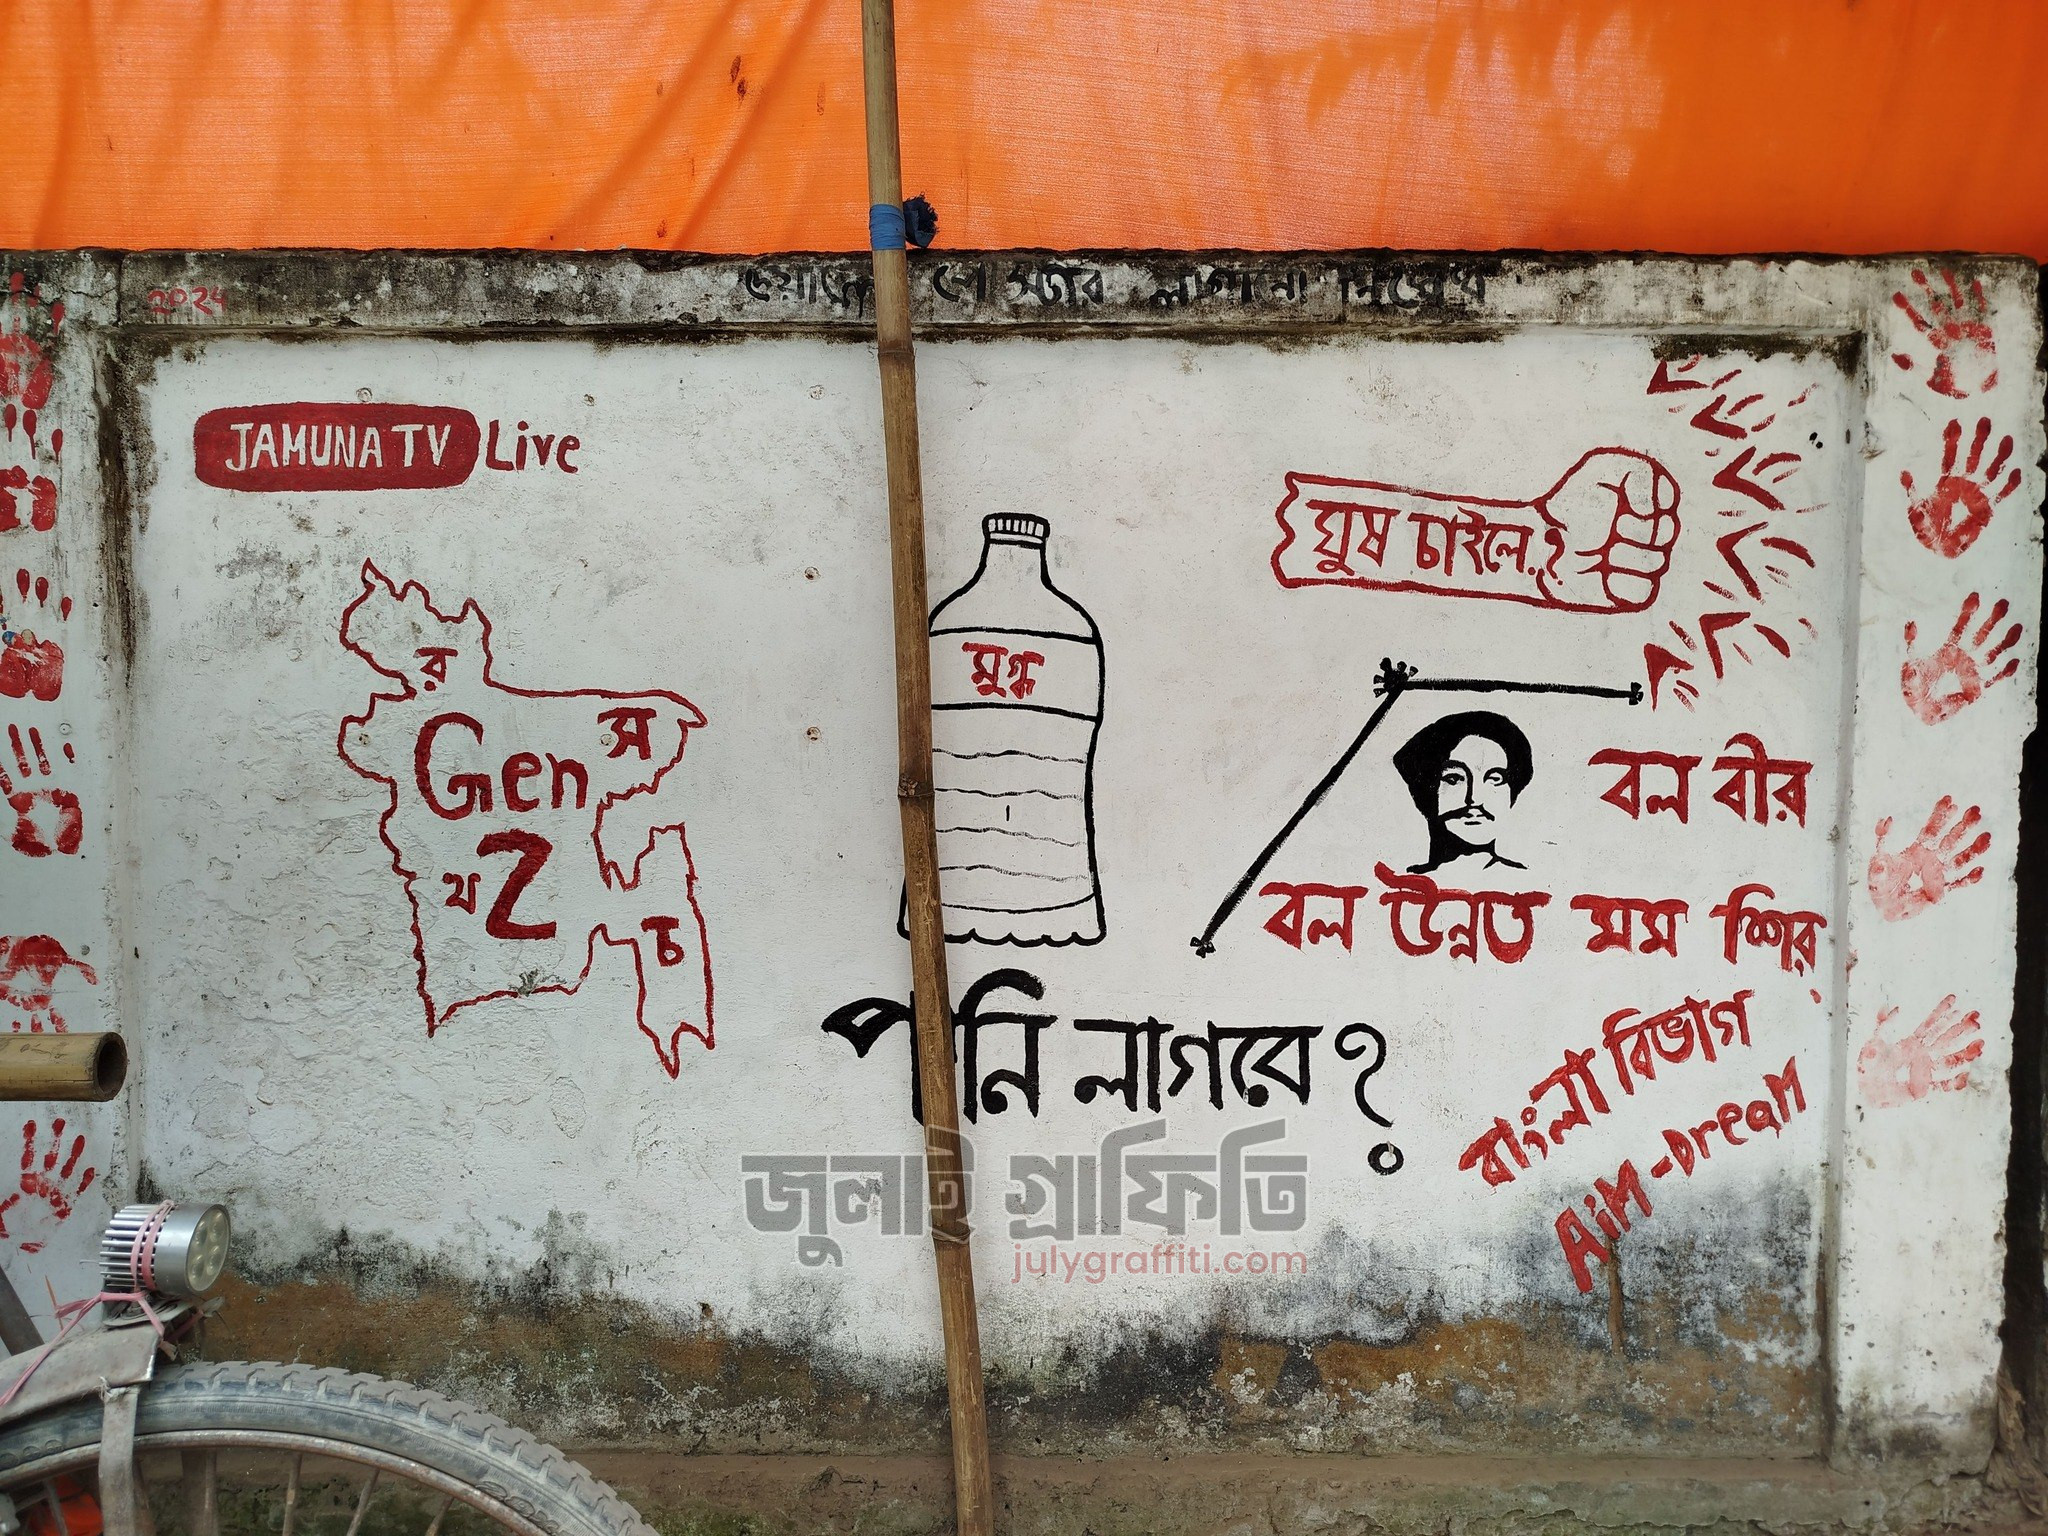 দেয়ালে পোস্টার লাগানো নিষেধ
2024
JAMUNA TV Live
ঘুষ চাইলে..?
র
Gen স
Z
খ
চ
মুগ্ধ
পানি লাগবে?
বল বীর
বল উন্নত মম শির
বাংলা বিভাগ
AiM-DreaM
জুলাই গ্রাফিতি
julygraffiti.com